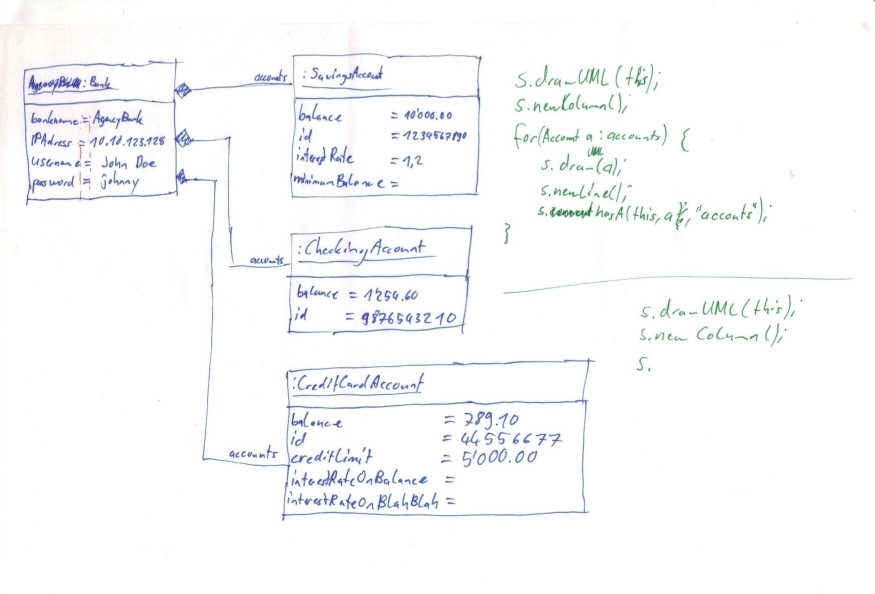 : Bank
bankname = AgencyBank
IPAdress = 10.10.123.128
username = John Doe
password = johnny
accounts
: SavingsAccount
balance = 10'000.00
id = 1234567890
interestRate = 1,2
minimumBalance =
accounts
:CheckingAccount
balance = 1'254.60
id = 9876543210
accounts
:CreditCardAccount
balance = 789.10
id = 44556677
creditLimit = 5'000.00
interestRateOnBalance =
interestRateOnBlahBlah =
s.drawUML(this);
s.newColumn();
for(Account a : accounts) {
s.drawUML(a);
s.newLine();
s.hasA(this, a, "accounts");
}
s.drawUML(this);
s.newColumn();
s.